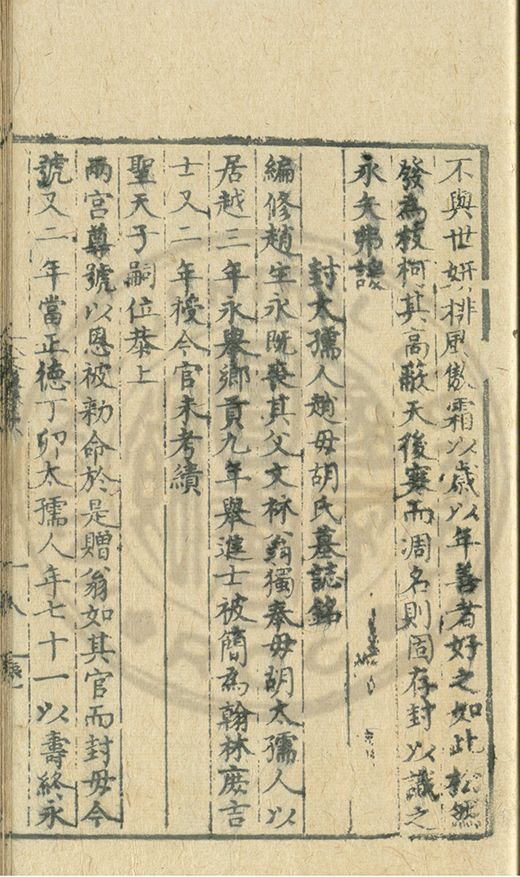 不與世妍排風傲霜以歲以年善者好之如此松然
發為枝柯其高蔽天後寒而凋名則固存封以識之
永矢弗諼
封太孺人趙母胡氏墓誌銘
編修趙生永既喪其父文林翁獨奉母胡太孺人以
居越三年永舉鄉貢九年舉進士被簡為翰林庶吉
士又二年授今官未考績
聖天子嗣位恭上
兩宮尊號以恩被勑命於是贈翁如其官而封母今
號又二年當正德丁卯太孺人年七十一以壽終永